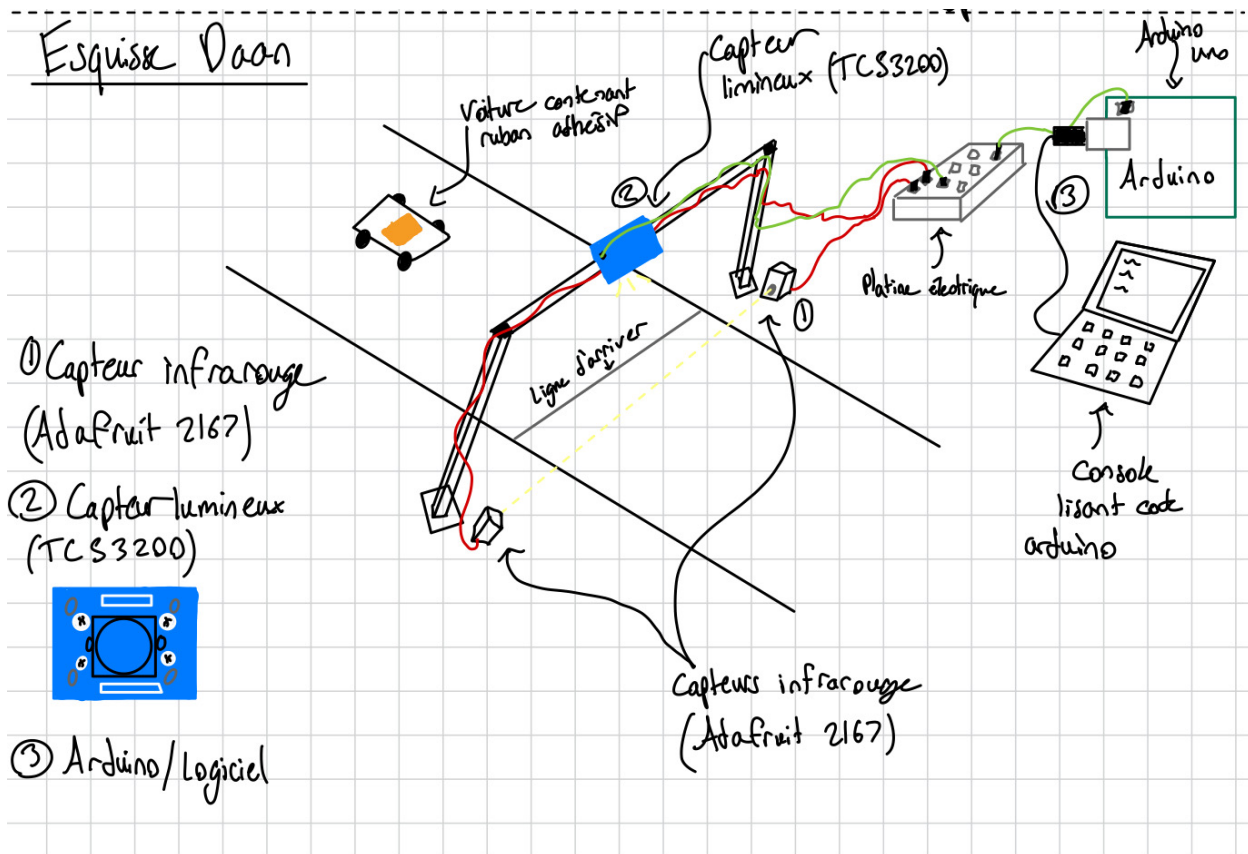 Esquisse Daan
Voiture contenant
ruban adhésif
Capteur
limineux (TCS3200)
Arduino
uno
②
Arduino
③
Platine électrique
①
Ligne d'arriver
① Capteur infrarouge
(Adafruit 2167)
② Capteur lumineux
(TCS3200)
Console
lisant code
arduino
Capteurs infrarouge
(Adafruit 2167)
③ Arduino/Logiciel